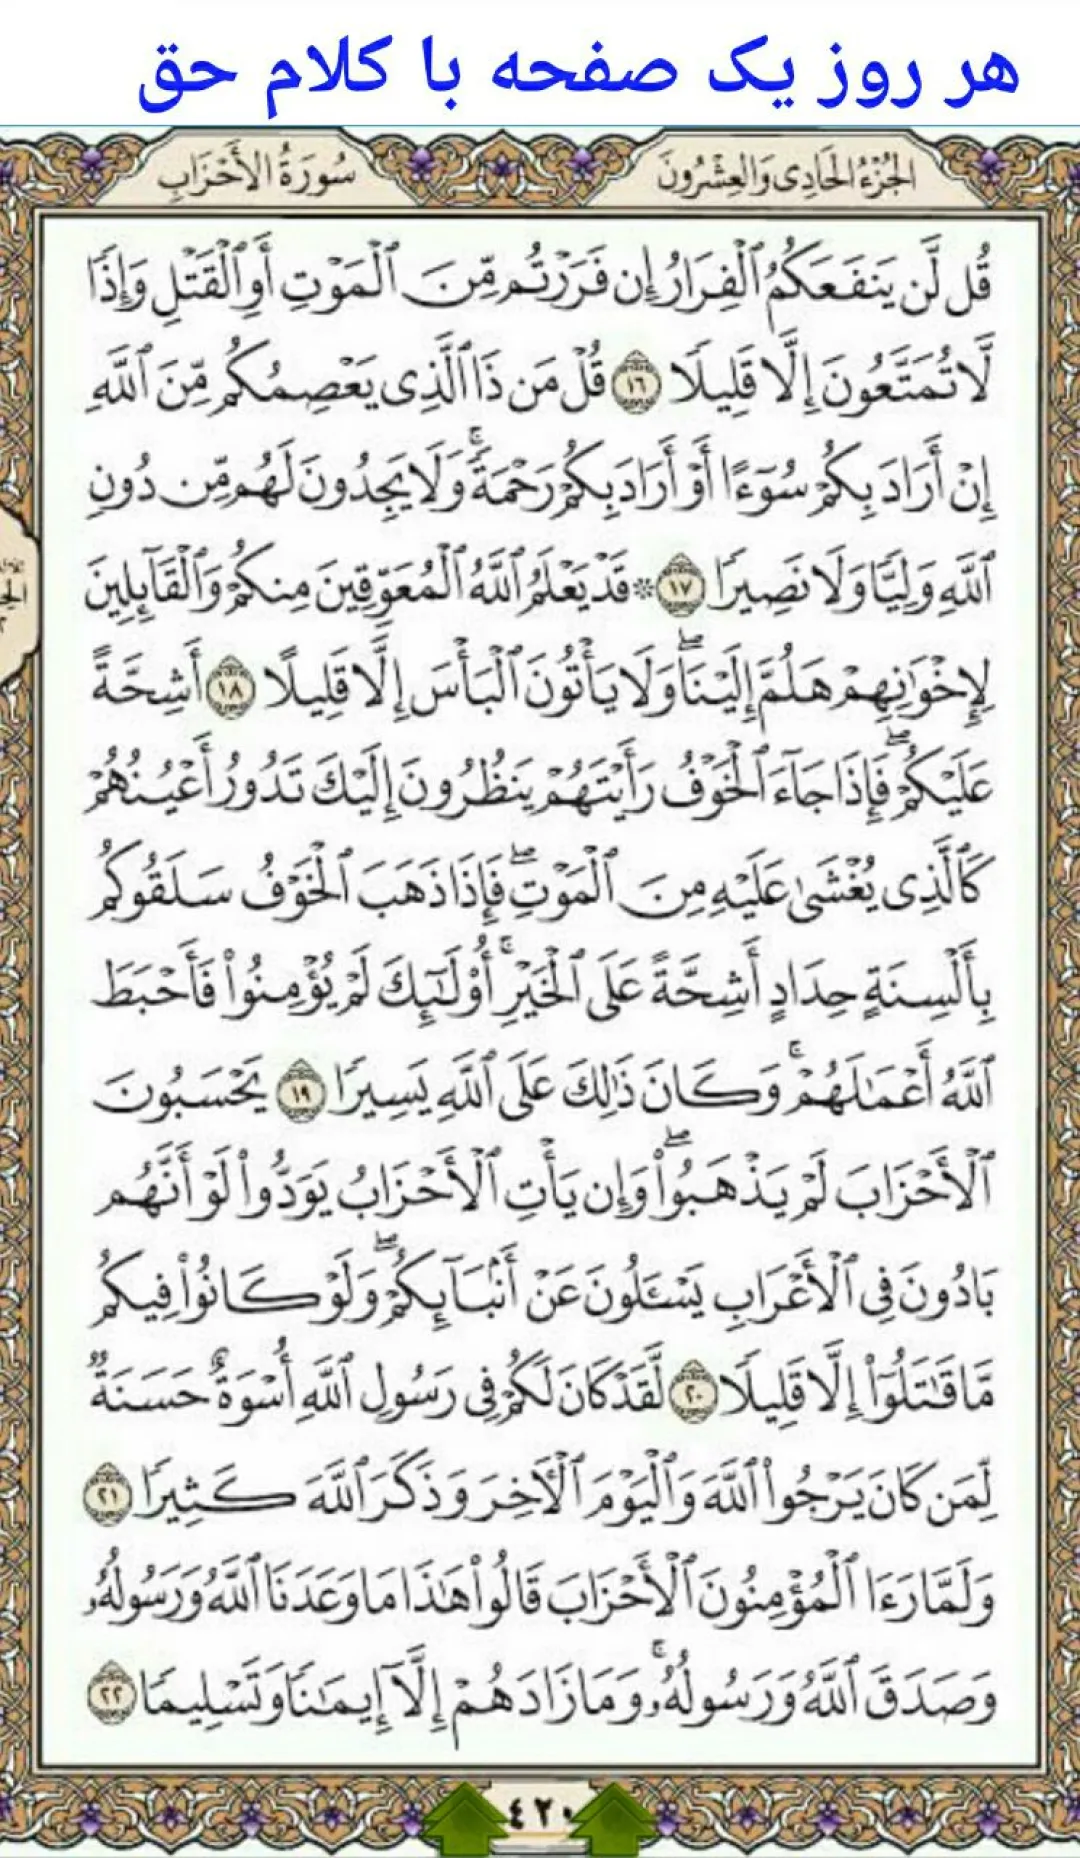 هر روز یک صفحه با کلام حق
الجُزْءُ الحَادِى وَالعِشْرُونَ
سُورَةُ الأَحْزَابِ
قُل لَّن يَنفَعَكُمُ ٱلْفِرَارُ إِن فَرَرْتُم مِّنَ ٱلْمَوْتِ أَوِ ٱلْقَتْلِ وَإِذًا
لَّا تُمَتَّعُونَ إِلَّا قَلِيلًا ١٦ قُلْ مَن ذَا ٱلَّذِى يَعْصِمُكُم مِّنَ ٱللَّهِ
إِنْ أَرَادَ بِكُمْ سُوٓءًا أَوْ أَرَادَ بِكُمْ رَحْمَةً ۚ وَلَا يَجِدُونَ لَهُم مِّن دُونِ
ٱللَّهِ وَلِيًّا وَلَا نَصِيرًا ١٧ ۞ قَدْ يَعْلَمُ ٱللَّهُ ٱلْمُعَوِّقِينَ مِنكُمْ وَٱلْقَآئِلِينَ
لِإِخْوَٰنِهِمْ هَلُمَّ إِلَيْنَا ۖ وَلَا يَأْتُونَ ٱلْبَأْسَ إِلَّا قَلِيلًا ١٨ أَشِحَّةً
عَلَيْكُمْ ۖ فَإِذَا جَآءَ ٱلْخَوْفُ رَأَيْتَهُمْ يَنظُرُونَ إِلَيْكَ تَدُورُ أَعْيُنُهُمْ
كَٱلَّذِى يُغْشَىٰ عَلَيْهِ مِنَ ٱلْمَوْتِ ۖ فَإِذَا ذَهَبَ ٱلْخَوْفُ سَلَقُوكُم
بِأَلْسِنَةٍ حِدَادٍ أَشِحَّةً عَلَى ٱلْخَيْرِ ۚ أُو۟لَٰٓئِكَ لَمْ يُؤْمِنُوا۟ فَأَحْبَطَ
ٱللَّهُ أَعْمَٰلَهُمْ ۚ وَكَانَ ذَٰلِكَ عَلَى ٱللَّهِ يَسِيرًا ١٩ يَحْسَبُونَ
ٱلْأَحْزَابَ لَمْ يَذْهَبُوا۟ ۖ وَإِن يَأْتِ ٱلْأَحْزَابُ يَوَدُّوا۟ لَوْ أَنَّهُم
بَادُونَ فِى ٱلْأَعْرَابِ يَسْـَٔلُونَ عَنْ أَنۢبَآئِكُمْ ۖ وَلَوْ كَانُوا۟ فِيكُم
مَّا قَٰتَلُوٓا۟ إِلَّا قَلِيلًا ٢٠ لَّقَدْ كَانَ لَكُمْ فِى رَسُولِ ٱللَّهِ أُسْوَةٌ حَسَنَةٌ
لِّمَن كَانَ يَرْجُوا۟ ٱللَّهَ وَٱلْيَوْمَ ٱلْـَٔاخِرَ وَذَكَرَ ٱللَّهَ كَثِيرًا ٢١
وَلَمَّا رَءَا ٱلْمُؤْمِنُونَ ٱلْأَحْزَابَ قَالُوا۟ هَٰذَا مَا وَعَدَنَا ٱللَّهُ وَرَسُولُهُۥ
وَصَدَقَ ٱللَّهُ وَرَسُولُهُۥ ۚ وَمَا زَادَهُمْ إِلَّآ إِيمَٰنًا وَتَسْلِيمًا ٢٢
٤٢٠